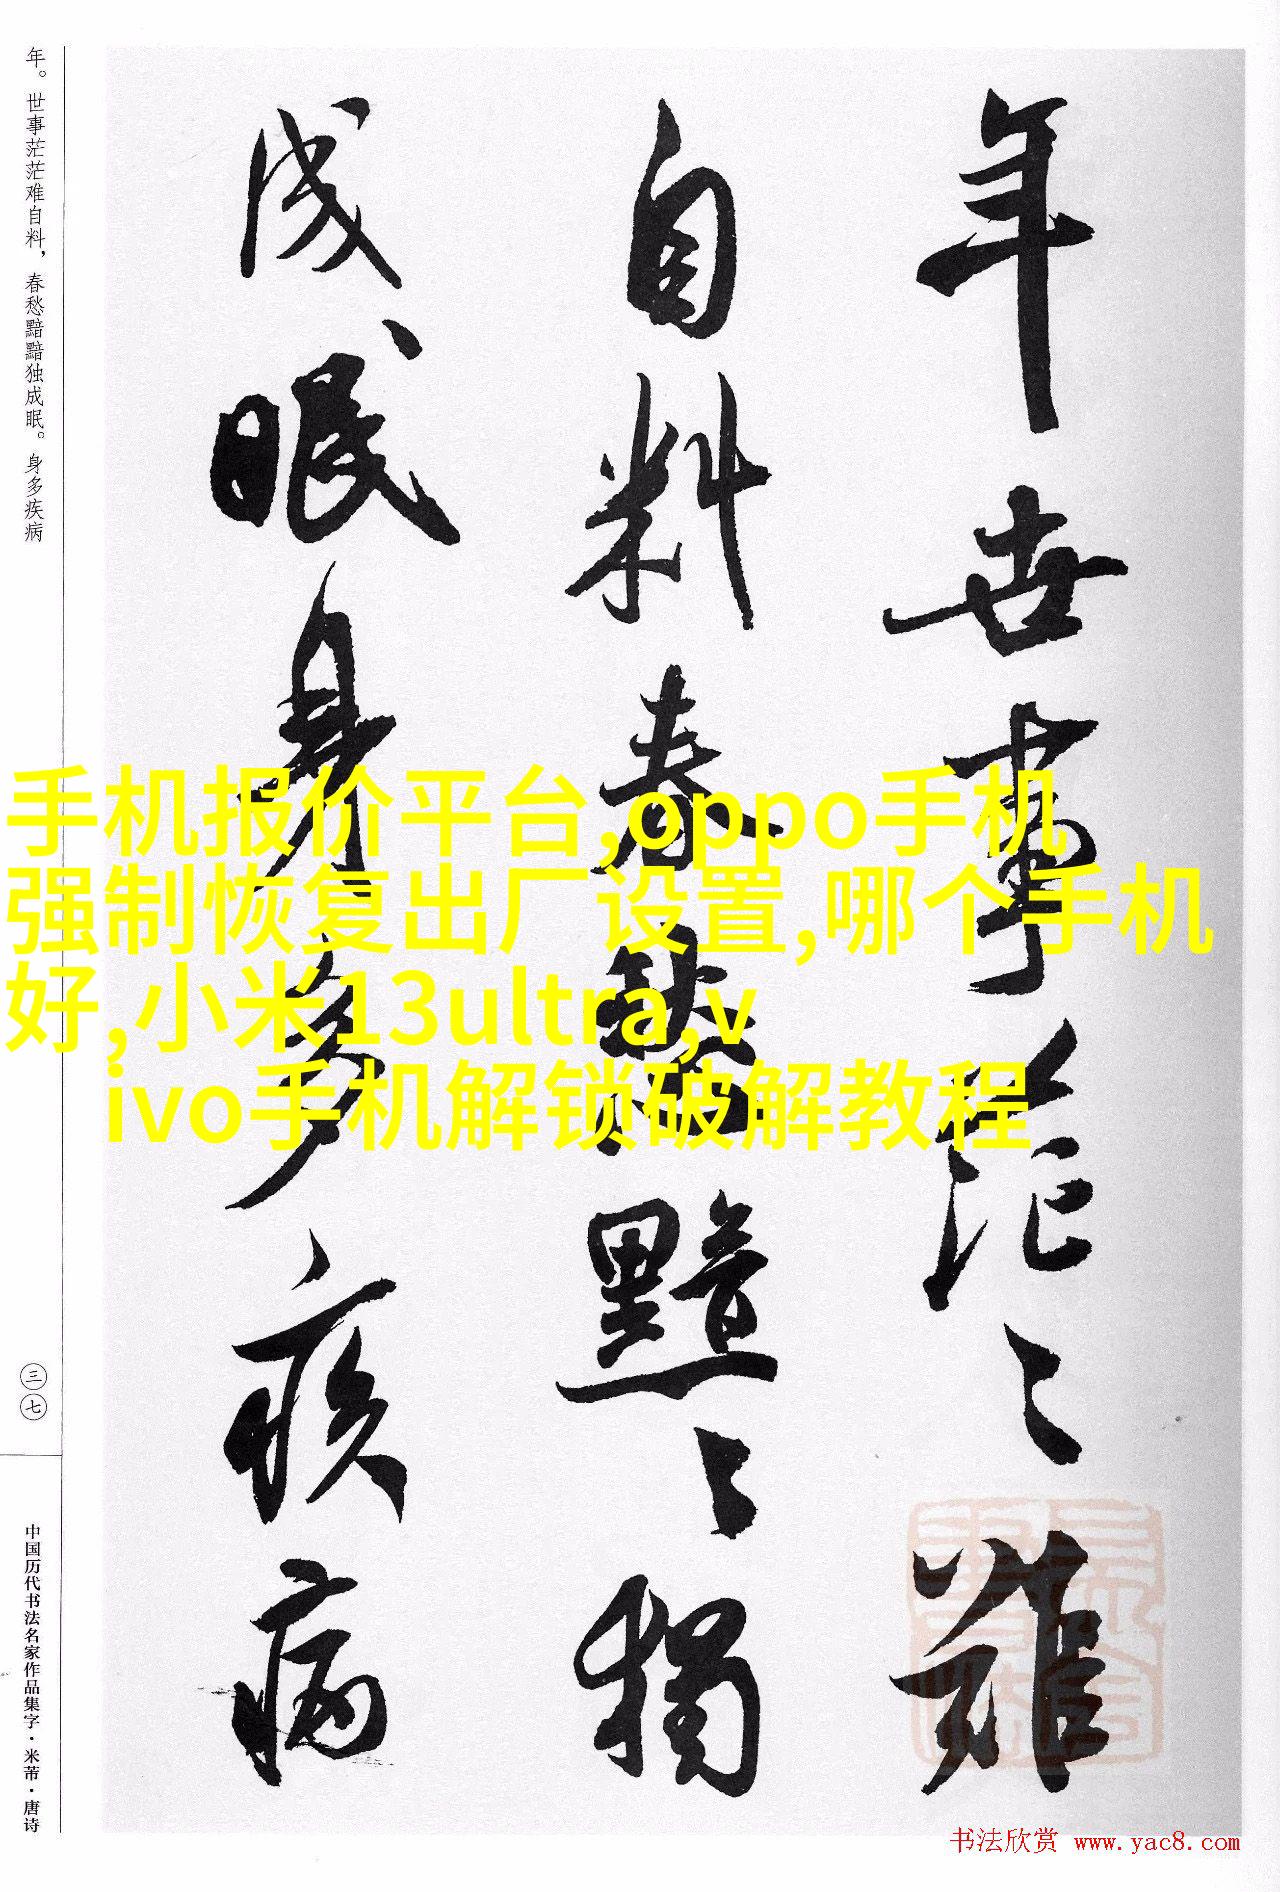 年世事茫〻难
自料春愁黯〻獨
成眠身多疾病
年。世事茫茫难自料，春愁黯黯独成眠。身多疾病
三七
中国历代书法名家作品集字·米芾·唐诗
手机报价平台,oppo手机
强制恢复出厂设置,哪个手机
好,小米13ultra,v
ivo手机解锁破解教程
书法欣赏 www.yac8.com